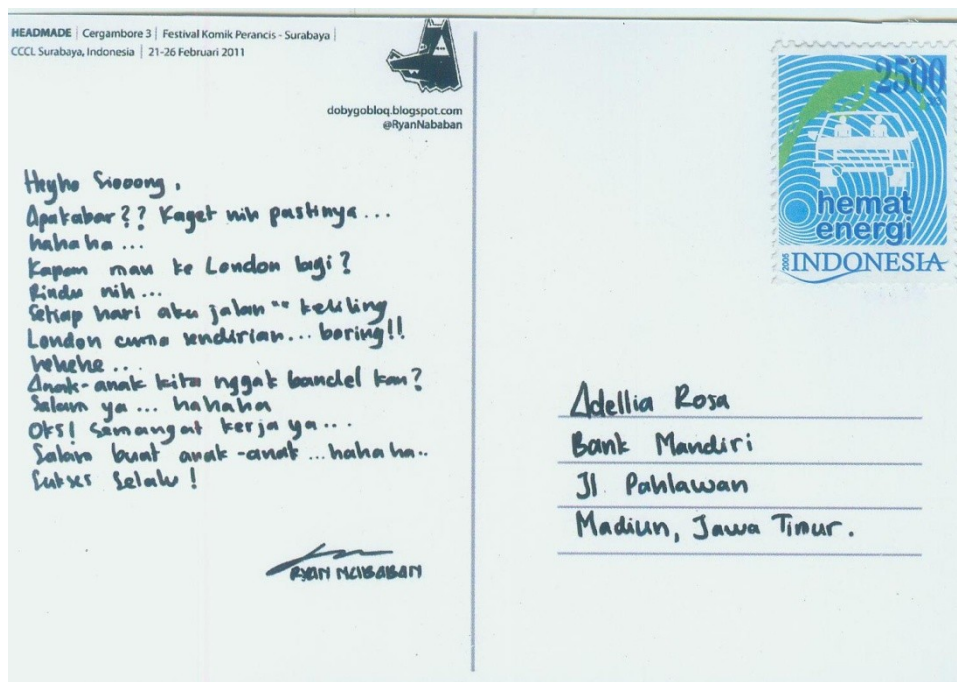 HEADMADE | Cergambore 3 | Festival Komik Perancis - Surabaya |
CCCL Surabaya, Indonesia | 21-26 Februari 2011
dobygobloq.blogspot.com
@RyanNababan
Heyho Siooong,
Apakabar?? Kaget nih pastinya...
hahaha...
Kapan mau ke London lagi?
Rindu nih...
Setiap hari aku jalan" keliling
London cuma sendirian... boring!!
hehehe...
Anak-anak kita nggak bandel kan?
Salam ya... hahaha
Oks! Semangat kerja ya...
Salam buat anak-anak...hahaha..
Sukses Selalu!
RYAN NABABAN
2500
hemat
energi
2005 INDONESIA
Adellia Rosa
Bank Mandiri
Jl Pahlawan
Madiun, Jawa Timur.